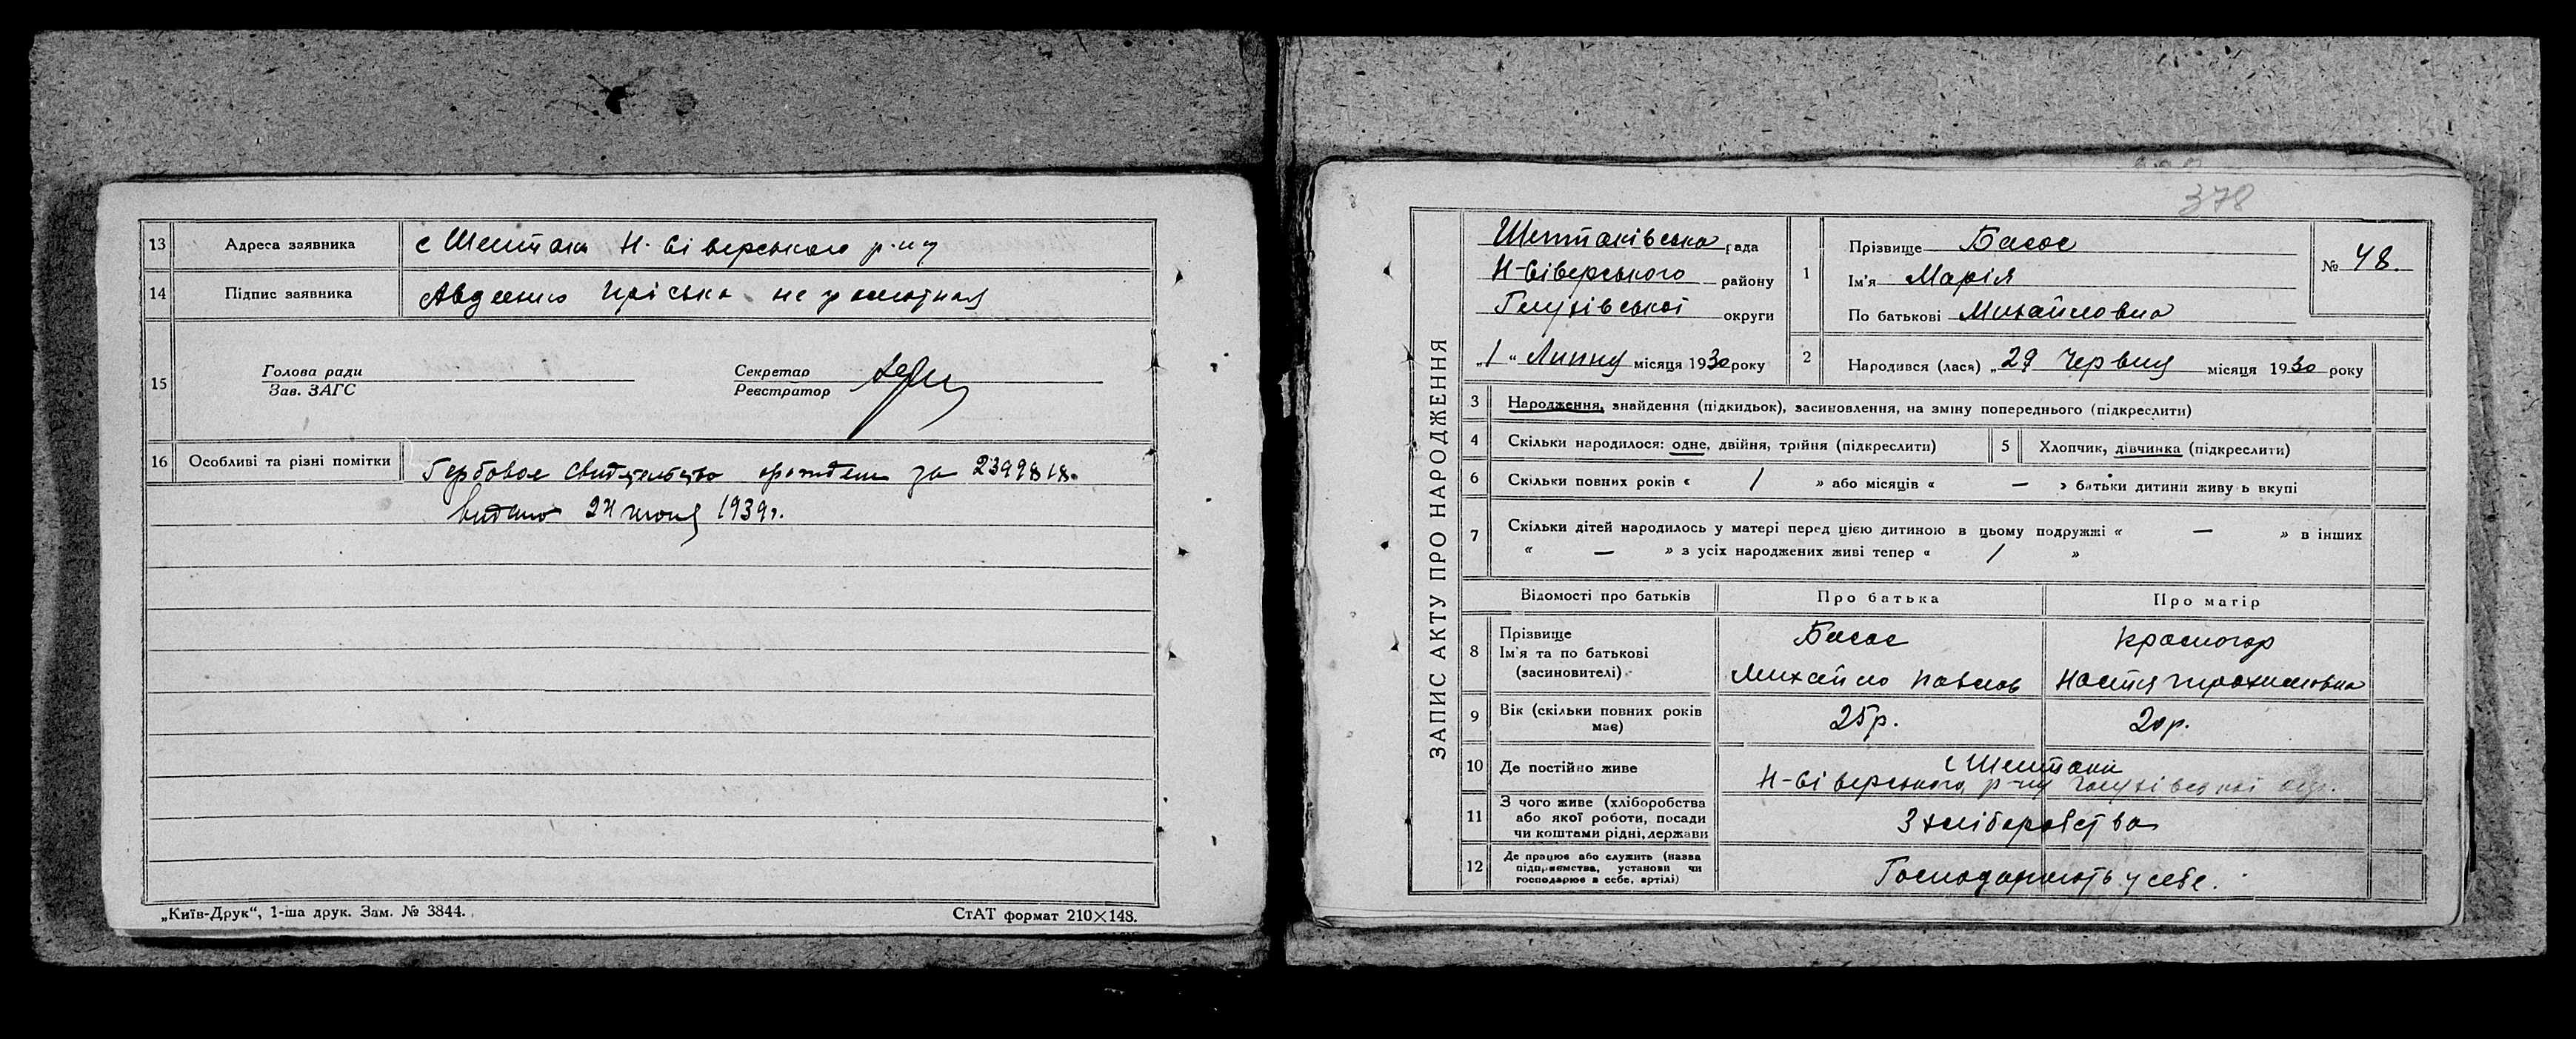 13 Адреса заявника с Шептаки Н-Сіверського р-ну
14 Підпис заявника Авденко Пріська неграмотная
15 Голова ради
Зав. ЗАГС
Секретар
Реєстратор
16 Особливі та різні помітки Гербовое свидетельство о рожден за
видано 24 июня 1939г.
„Київ-Друк“, 1-ша друк. Зам. № 3844.
СтАТ формат 210×148.
378
ЗАПИС АКТУ ПРО НАРОДЖЕННЯ
Шептаківська рада
Н-Сіверського району
Глухівської округи
„1“ Липня місяця 1930 року
1 Прізвище Басос
Ім'я Марія
По батькові Михайловна
№ 48.
2 Народився (лася) „29 Червня місяця 1930 року
3 Народження, знайдення (підкидьок), засиновлення, на зміну попереднього (підкреслити)
4 Скільки народилося: одне, двійня, трійня (підкреслити)
5 Хлопчик, дівчинка (підкреслити)
6 Скільки повних років « 1 » або місяців « — » батьки дитини живуть вкупі
7 Скільки дітей народилось у матері перед цією дитиною в цьому подружжі « — » в інших
« — » з усіх народжених живі тепер « 1 »
Відомості про батьків Про батька Про матір
8 Прізвище
Ім'я та по батькові
(засиновителі)
Басос
Михайло Павлов
Красногор
Настя Трохимовна
9 Вік (скільки повних років має) 25р. 20р.
10 Де постійно живе с Шептаки
Н-Сіверського р-ну Глухівської окр.
11 З чого живе (хліборобства
або якої роботи, посади
чи коштами рідні, держави
З хліборобства
12 Де працює або служить (назва
підприємства, установи чи
господарює в себе, артілі)
Господарюють у себе.